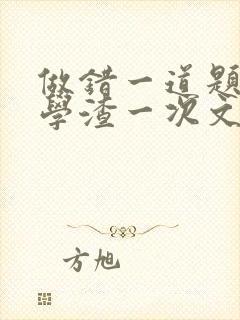 做錯一道題
學渣一次文
方旭